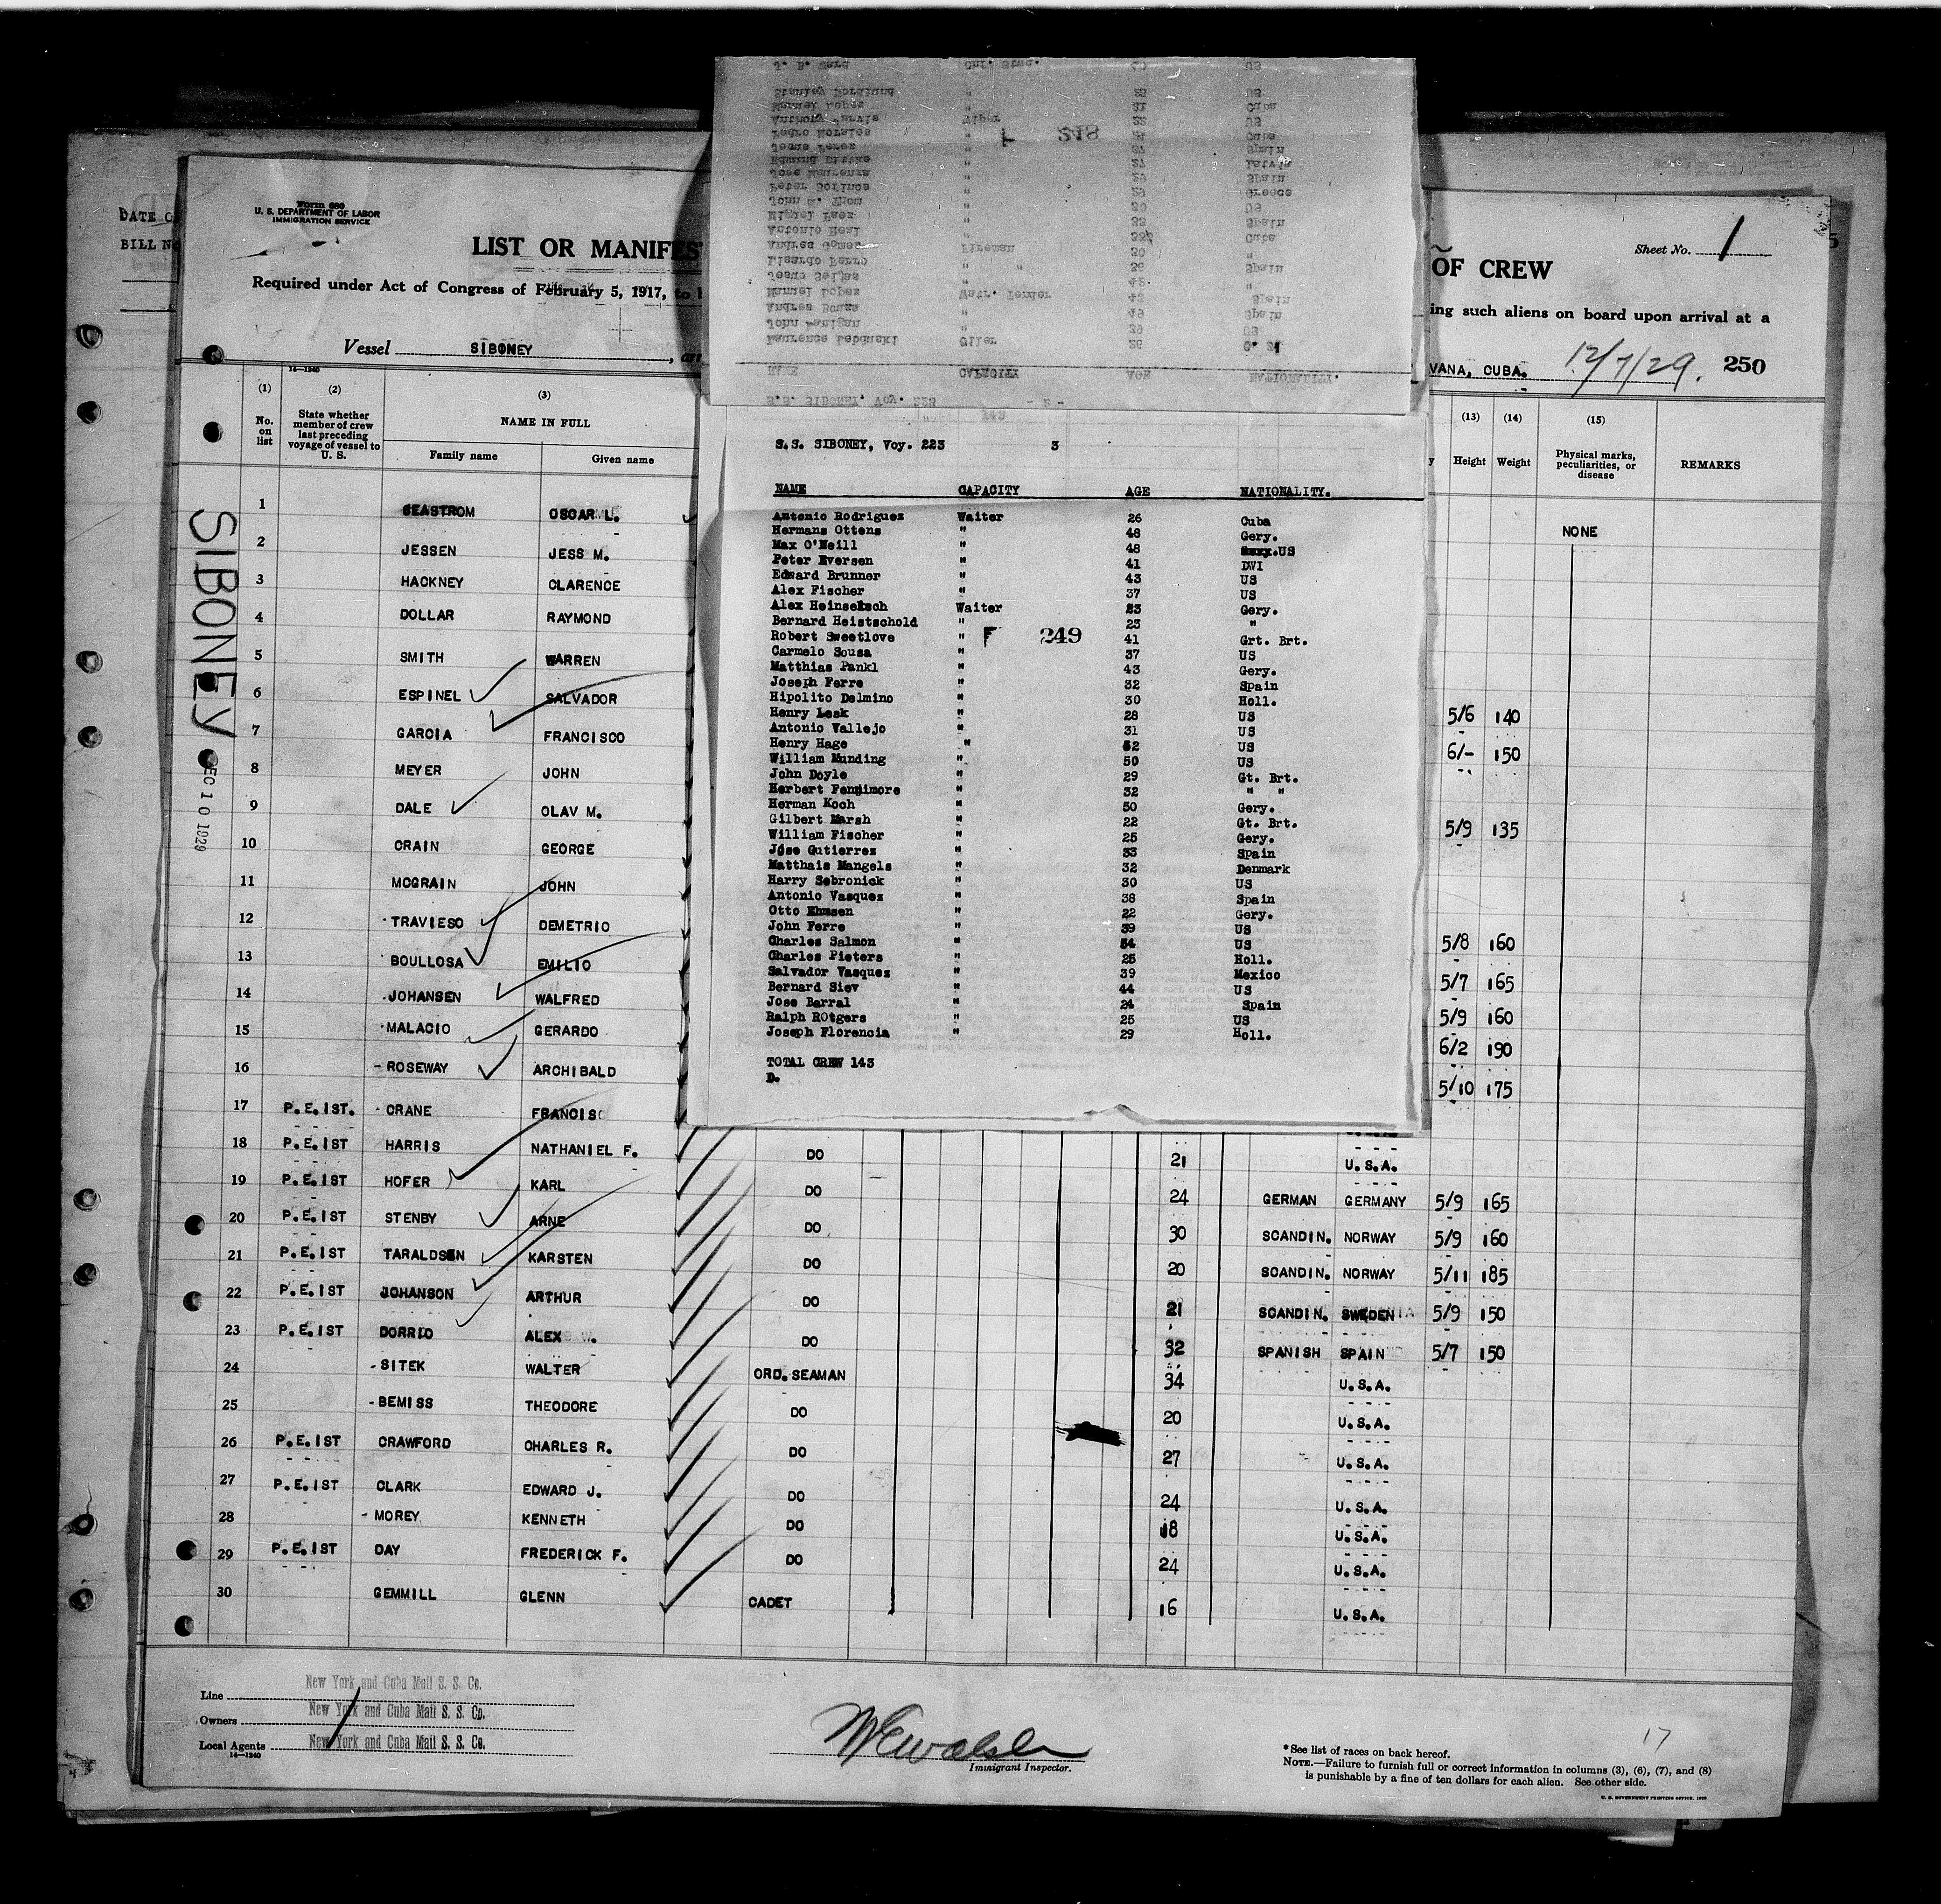 DATE O
BILL N
Form 680
U. S. DEPARTMENT OF LABOR
IMMIGRATION SERVICE
LIST OR MANIFES
OF CREW
Sheet No. 1
Required under Act of Congress of February 5, 1917, to b
ing such aliens on board upon arrival at a
Vessel SIBONEY, arr
VANA, CUBA. 12/7/29. 250
14—1240
(1) (2) (3) (13) (14) (15)
No. on list
State whether member of crew last preceding voyage of vessel to U. S.
NAME IN FULL
Family name Given name
Height Weight
Physical marks, peculiarities, or disease
REMARKS
SIBONEY
EC 10 1929
1 SEASTROM OSCAR L. NONE
2 JESSEN JESS M.
3 HACKNEY CLARENCE
4 DOLLAR RAYMOND
5 SMITH WARREN
6 ESPINEL SALVADOR 5/6 140
7 GARCIA FRANCISCO 6/- 150
8 MEYER JOHN
9 DALE OLAV M. 5/9 135
10 CRAIN GEORGE
11 MCGRAIN JOHN
12 TRAVIESO DEMETRIO 5/8 160
13 BOULLOSA EMILIO 5/7 165
14 JOHANSEN WALFRED 5/9 160
15 MALACIO GERARDO 6/2 190
16 ROSEWAY ARCHIBALD 5/10 175
17 P.E.IST. CRANE FRANCIS
18 P.E.IST HARRIS NATHANIEL F. DO 21 U.S.A.
19 P.E.IST HOFER KARL DO 24 GERMAN GERMANY 5/9 165
20 P.E.IST STENBY ARNE DO 30 SCANDIN. NORWAY 5/9 160
21 P.E.IST TARALDSEN KARSTEN DO 20 SCANDIN. NORWAY 5/11 185
22 P.E.IST JOHANSON ARTHUR DO 21 SCANDIN. SWEDEN 5/9 150
23 P.E.IST DORRIO ALEX DO 32 SPANISH SPAIN 5/7 150
24 SITEK WALTER ORD. SEAMAN 34 U.S.A.
25 BEMISS THEODORE DO 20 U.S.A.
26 P.E.IST CRAWFORD CHARLES R. DO 27 U.S.A.
27 P.E.IST CLARK EDWARD J. DO 24 U.S.A.
28 MOREY KENNETH DO 18 U.S.A.
29 P.E.IST DAY FREDERICK F. DO 24 U.S.A.
30 GEMMILL GLENN CADET 16 U.S.A.
J. B. Ward Chf. Stwd. US
Stanley Norslund " 25 US
Manuel Lopez " 31 Cuba
Anthony Jarvis Wiper 22 US
Pedro Morales " Cuba
F 248
Jesus Perez " 37 Spain
Edmund Dittke " 27 Latvia
Jose Maurenza " 29 Spain
Peter Sorinos " 29 Greece
John E. Thom " 30 US
Miguel Paez " 33 Spain
Antonio Real " Cuba
Andres Gomez Fireman 30 "
Lisardo Ferro " " 36 Spain
Jesus Seijas " 42 "
Manuel Lopez Watr. Tender 43 Spain
Andres Bouza " 49 Spain
John Lanigan " 39 US
Laurence Lebduski Oiler 26
NAME CAPACITY AGE NATIONALITY.
S.S. SIBONEY, Voy. 223 - 2 -
143
S.S. SIBONEY, Voy. 223 3
NAME CAPACITY AGE NATIONALITY.
Antonio Rodriguez Waiter 26 Cuba
Hermans Ottens " 48 Gery.
Max O'Neill " 48 US
Peter Eversen " 41 DWI
Edward Brunner " 43 US
Alex Fischer " 37 US
Alex Heinseksch Waiter 23 Gery.
Bernard Heistschold " 23 "
Robert Sweetlove " 41 Grt. Brt.
F 249
Carmelo Sousa " 37 US
Matthias Pankl " 43 Gery.
Joseph Ferre " 32 Spain
Hipolito Delmino " 30 Holl.
Henry Lesk " 28 US
Antonio Vallejo " 31 US
Henry Hage " 52 US
William Munding " 50 US
John Doyle " 29 Gt. Brt.
Herbert Fennimore " 32 " "
Herman Koch " 50 Gery.
Gilbert Marsh " 22 Gt. Brt.
William Fischer " 25 Gery.
Jose Gutierrez " 33 Spain
Matthais Mangels " 32 Denmark
Harry Sebronick " 30 US
Antonio Vasquez " 38 Spain
Otto Ehmsen " 22 Gery.
John Ferre " 39 US
Charles Salmon " 54 US
Charles Pieters " 25 Holl.
Salvador Vasquez " 39 Mexico
Bernard Siev " 44 US
Jose Barral " 24 Spain
Ralph ROtgers " 25 US
Joseph Florencia " 29 Holl.
TOTAL CREW 143
D.
Line New York and Cuba Mail S. S. Co.
Owners New York and Cuba Mail S. S. Co.
Local Agents New York and Cuba Mail S. S. Co.
14—1240
W E Walsh
Immigrant Inspector.
17
* See list of races on back hereof.
NOTE.—Failure to furnish full or correct information in columns (3), (6), (7), and (8)
is punishable by a fine of ten dollars for each alien. See other side.
U. S. GOVERNMENT PRINTING OFFICE. 1929